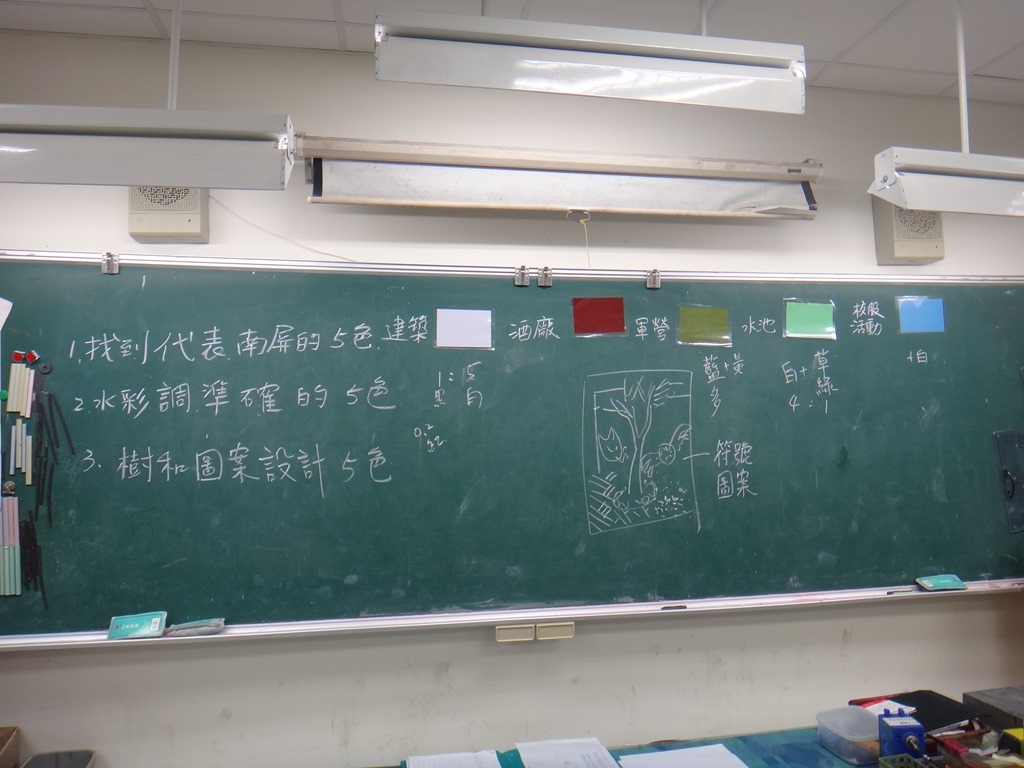 1.找到代表南屏的5色.
2.水彩調準確的5色
3.樹和圖案設計5色
建築
酒廠
軍營
水池
校服
活動
1:5
黑 白
0.2
藍+黃
多
白+草綠
4:1
+白
符號
圖案